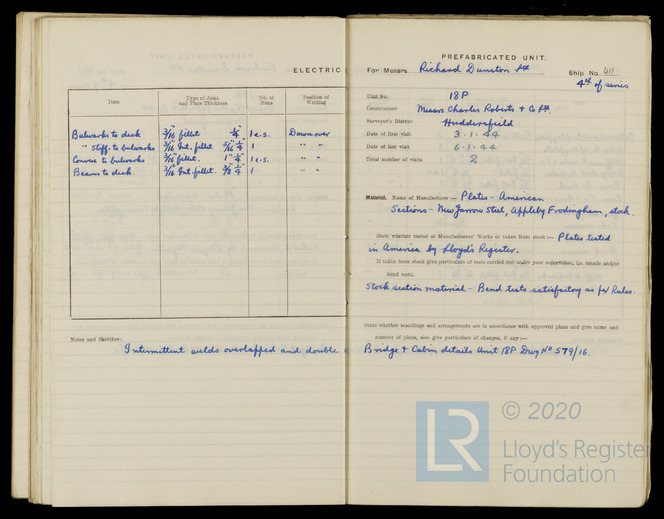 ELECTRIC
Item
Type of Joint
and Plate Thickness
No. of
Runs
Position of
Welding
Bulwarks to deck 3/16" fillet 1/4" 1 e.s. Downover
" Stiff. to bulwarks 3/16" Int. fillet 5/16" 1/4" 1 " "
Convex to bulwarks 3/16" fillet. 1" 1/4" 1 e.s. " "
Beams to deck. 3/16" Int. fillet. 3/8" 1/4" 1 " "
Notes and Sketches:
Intermittent welds overlapped and double
PREFABRICATED UNIT.
For Messrs. Richard Dunston Ltd Ship No. 411
4th of series
Unit No. 18P
Constructors Messrs Charles Roberts & Co Ltd.
Surveyor's District Huddersfield
Date of first visit 3.1.44
Date of last visit 6.1.44
Total number of visits 2
Material. Name of Manufacturer:— Plates - American
Sections - New Jarrow Steel, Appleby Frodingham, stock.
State whether tested at Manufacturers' Works or taken from stock:— Plates tested
in America by Lloyd's Register.
If taken from stock give particulars of tests carried out under your supervision, i.e. tensile and/or
bend tests.
Stock section material - Bend tests satisfactory as per Rules.
State whether scantlings and arrangements are in accordance with approved plans and give name and
number of plans, also give particulars of changes, if any:—
Bridge & Cabin details Unit 18P Dwg No 579/16.
LR
© 2020
Lloyd's Register
Foundation